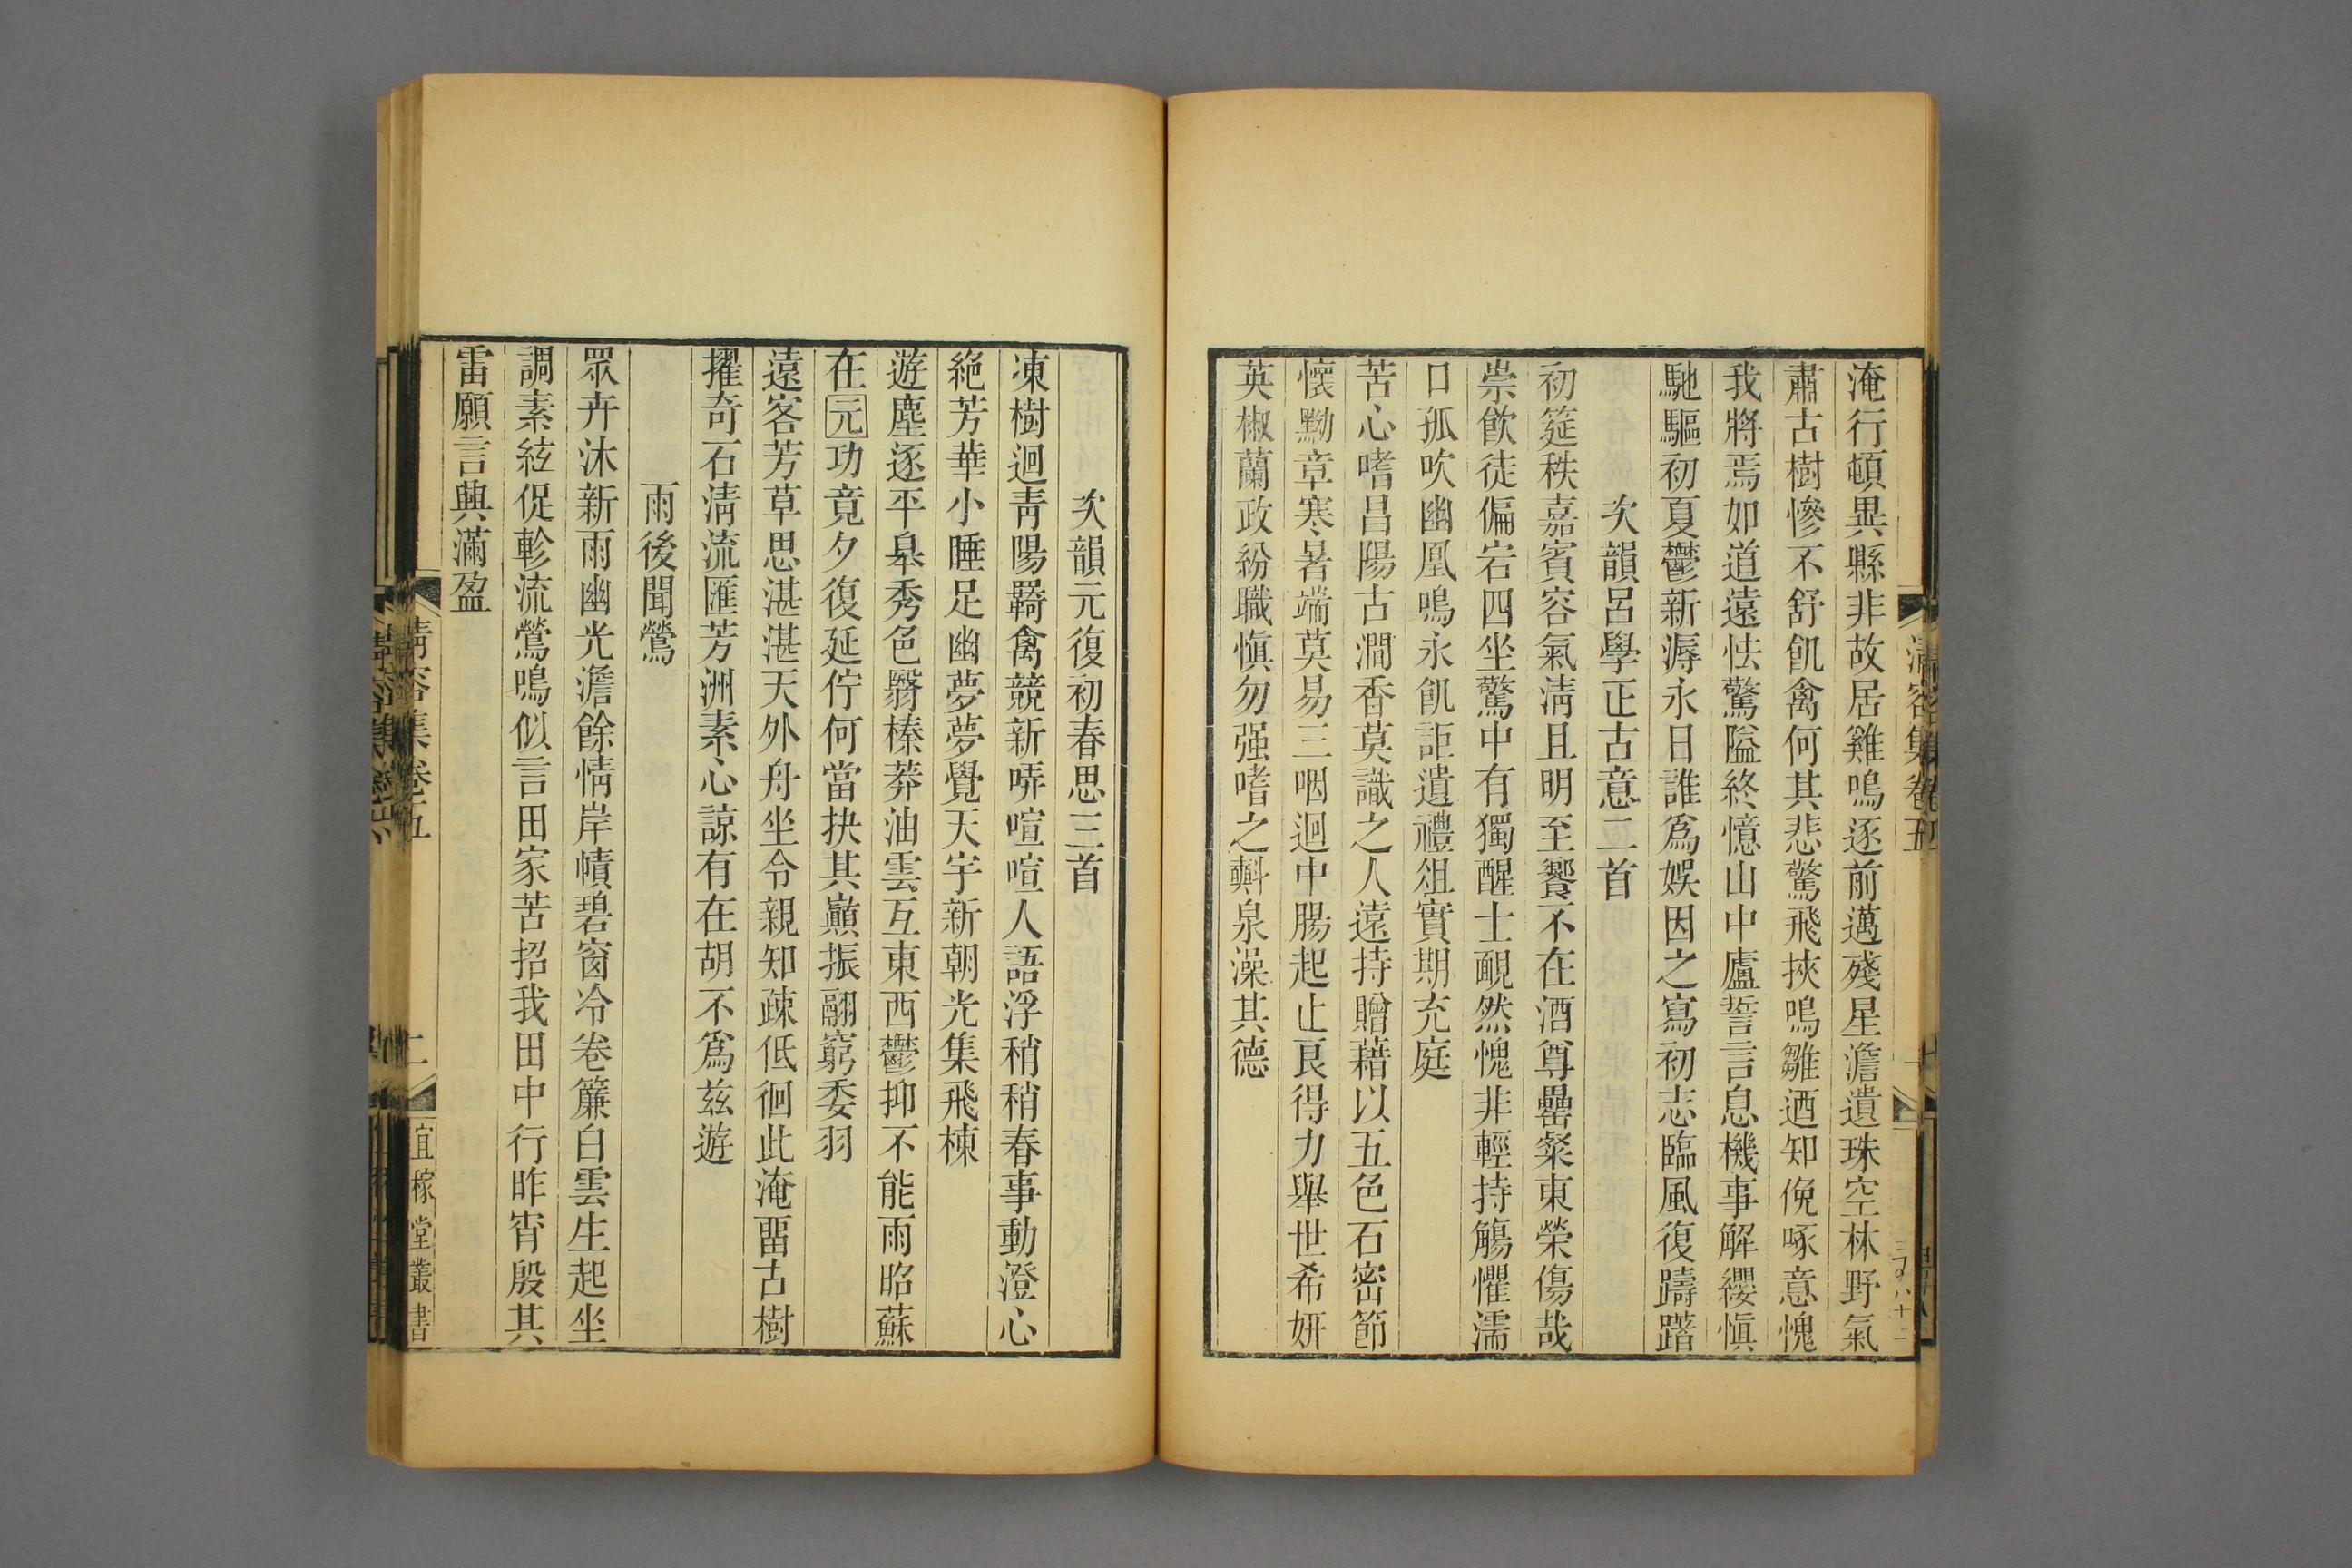 淹行頓異縣非故居雞鳴逐前邁殘星澹遺珠空林野氣
肅古樹慘不舒飢禽何其悲驚飛挾鳴雛迺知俛啄意愧
我將焉如道遠怯驚隘終憶山中廬誓言息機事解纓愼
馳驅初夏鬱新溽永日誰爲娛因之寫初志臨風復躊躇
次韻呂學正古意二首
初筵秩嘉賓容氣淸且明至饗不在酒尊罍粲東榮傷哉
崇飮徒偏宕四坐驚中有獨醒士靦然愧非輕持觴懼濡
口孤吹幽凰鳴永飢詎遺禮俎實期充庭
苦心嗜昌陽古澗香莫識之人遠持贈藉以五色石密節
懷黝章寒暑端莫易三咽迴中腸起止良得力舉世希妍
英椒蘭政紛職愼勿强嗜之㪺泉澡其德
次韻元復初春思三首
凍樹迴靑陽羇禽競新哢喧喧人語浮稍稍春事動澄心
絕芳華小睡足幽夢夢覺天宇新朝光集飛棟
遊塵逐平皋秀色翳榛莽油雲互東西鬱抑不能雨昭蘇
在元功竟夕復延佇何當抉其巔振翮窮委羽
遠客芳草思湛湛天外舟坐令親知疎低徊此淹畱古樹
擢奇石淸流匯芳洲素心諒有在胡不爲茲遊
雨後聞鶯
眾卉沐新雨幽光澹餘情岸幘碧窗冷卷簾白雲生起坐
調素絃促軫流鶯鳴似言田家苦招我田中行昨宵殷其
雷願言興滿盈
淸容集卷五
二
宜稼堂叢書